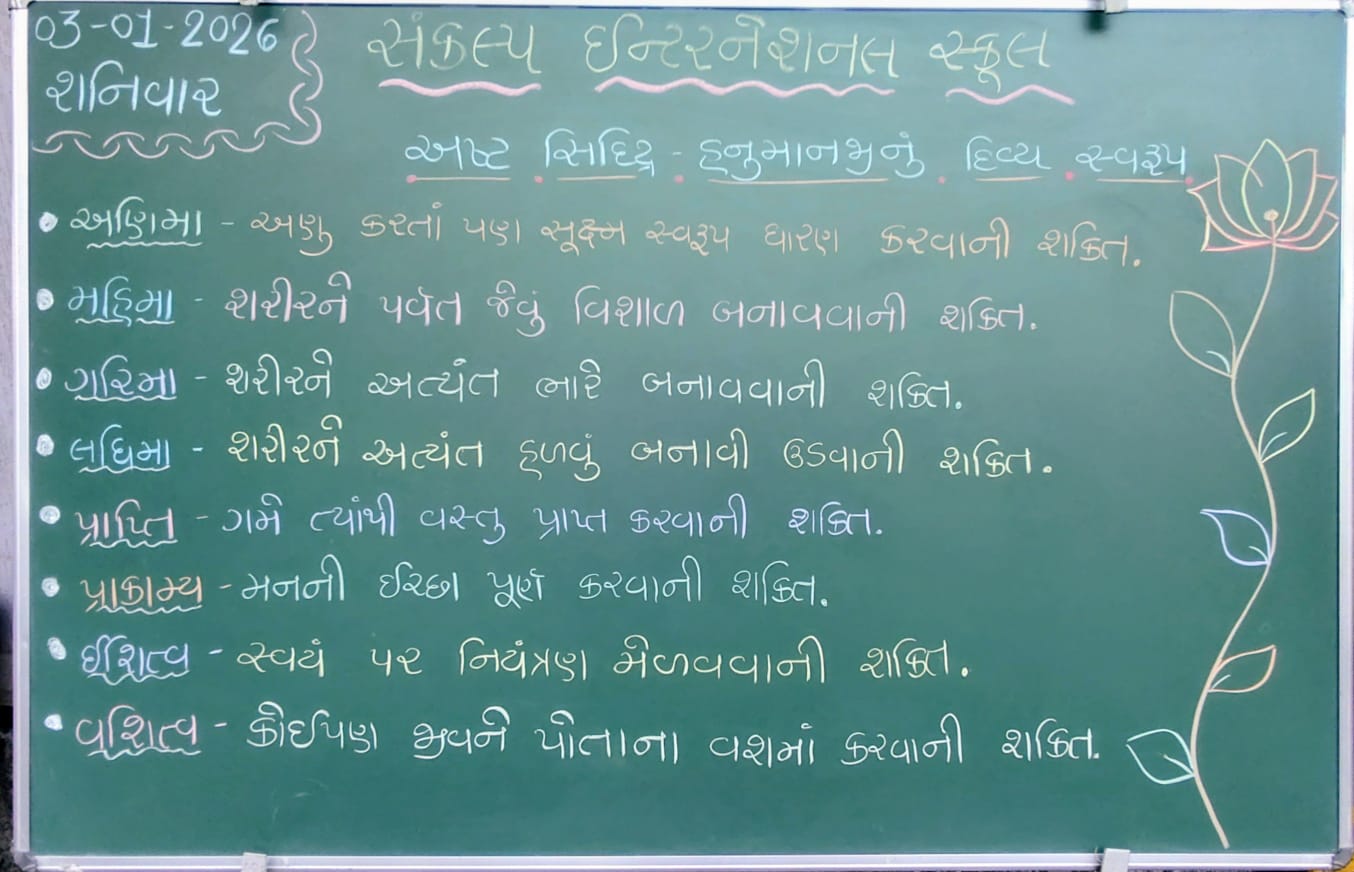 03-01-2026
શનિવાર
સંકલ્પ ઈન્ટરનેશનલ સ્કૂલ
અષ્ટ સિધ્ધિ - હનુમાનજીનું દિવ્ય સ્વરૂપ
• અણિમા - અણુ કરતાં પણ સૂક્ષ્મ સ્વરૂપ ધારણ કરવાની શક્તિ.
• મહિમા - શરીરને પર્વત જેવું વિશાળ બનાવવાની શક્તિ.
• ગરિમા - શરીરને અત્યંત ભારે બનાવવાની શક્તિ.
• લઘિમા - શરીરને અત્યંત હળવું બનાવી ઉડવાની શક્તિ.
• પ્રાપ્તિ - ગમે ત્યાંથી વસ્તુ પ્રાપ્ત કરવાની શક્તિ.
• પ્રાકામ્ય - મનની ઈચ્છા પૂર્ણ કરવાની શક્તિ.
• ઈશિત્વ - સ્વયં પર નિયંત્રણ મેળવવાની શક્તિ.
• વશિત્વ - કોઈપણ જીવને પોતાના વશમાં કરવાની શક્તિ.